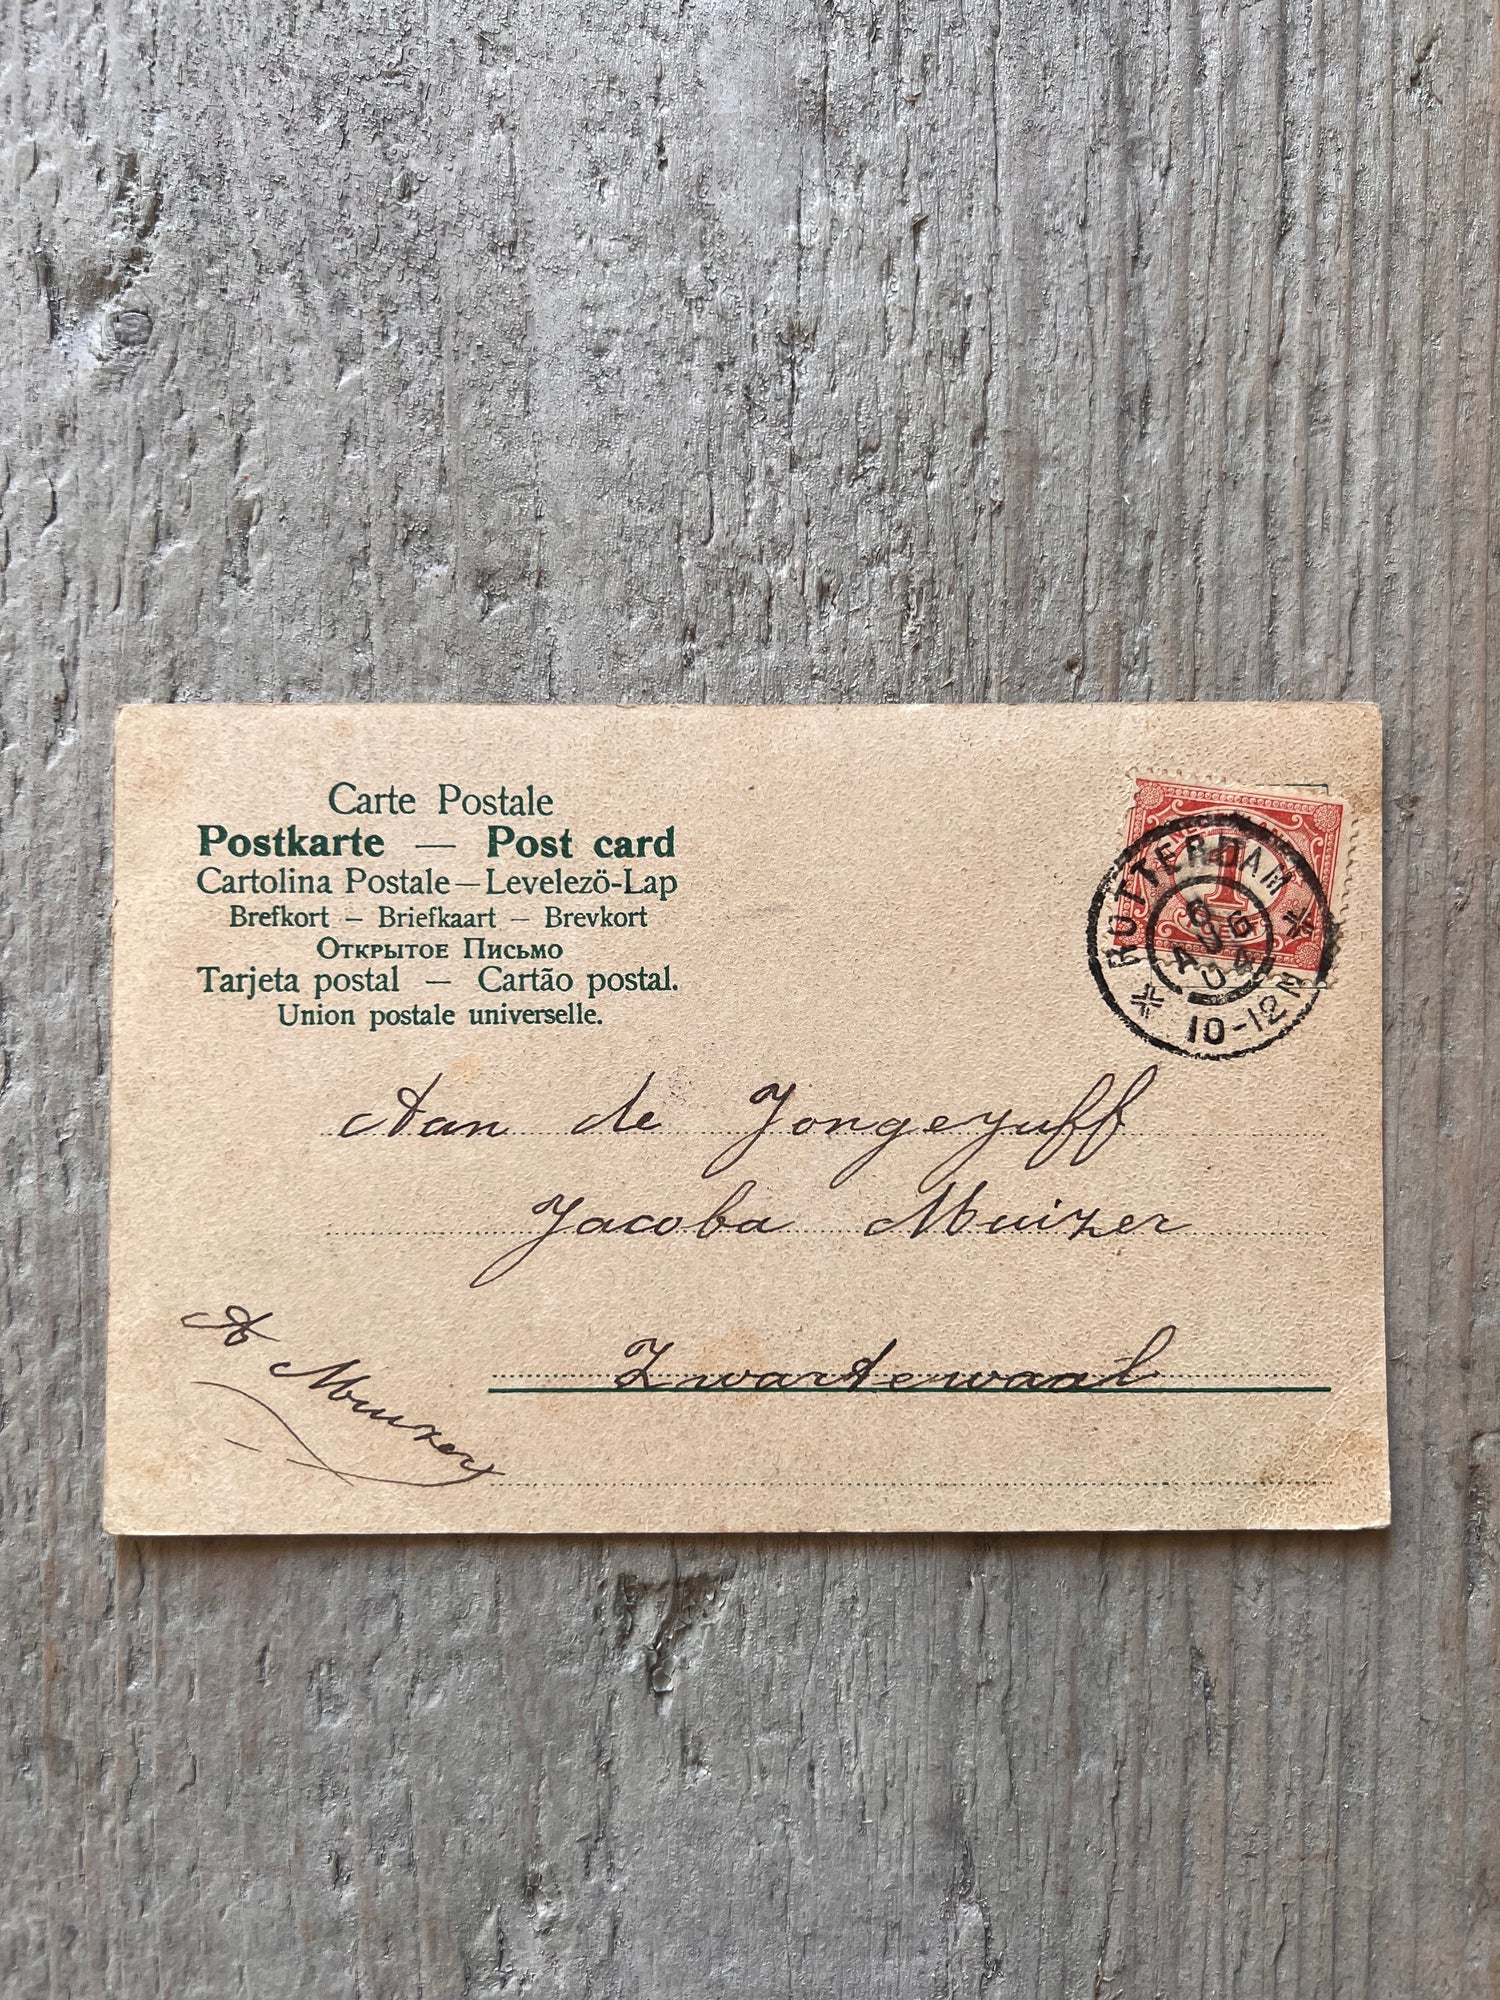 Carte Postale
Postkarte — Post card
Cartolina Postale — Levelezö-Lap
Brefkort – Briefkaart – Brevkort
Открытое Письмо
Tarjeta postal — Cartão postal.
Union postale universelle.
ROTTERDAM
8
AUG
04
10-12N
1
Aan de Jongejuff
Jacoba Muizer
Zwartewaal
A Muizer